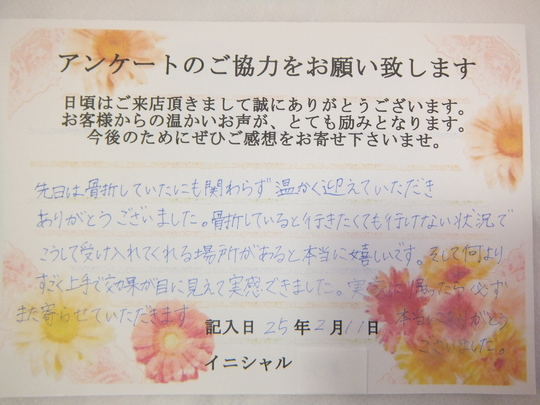 アンケートのご協力をお願い致します
日頃はご来店頂きまして誠にありがとうございます。
お客様からの温かいお声が、とても励みとなります。
今後のためにぜひご感想をお寄せ下さいませ。
先日は骨折していたにも関わらず温かく迎えていただき
ありがとうございました。骨折していると行きたくても行けない状況で
こうして受け入れてくれる場所があると本当に嬉しいです。そして何より
すごく上手で効果が目に見えて実感できました。たら必ず
また寄らせていただきます
本当にありがとう
ございました。
記入日 25年2月11日
イニシャル